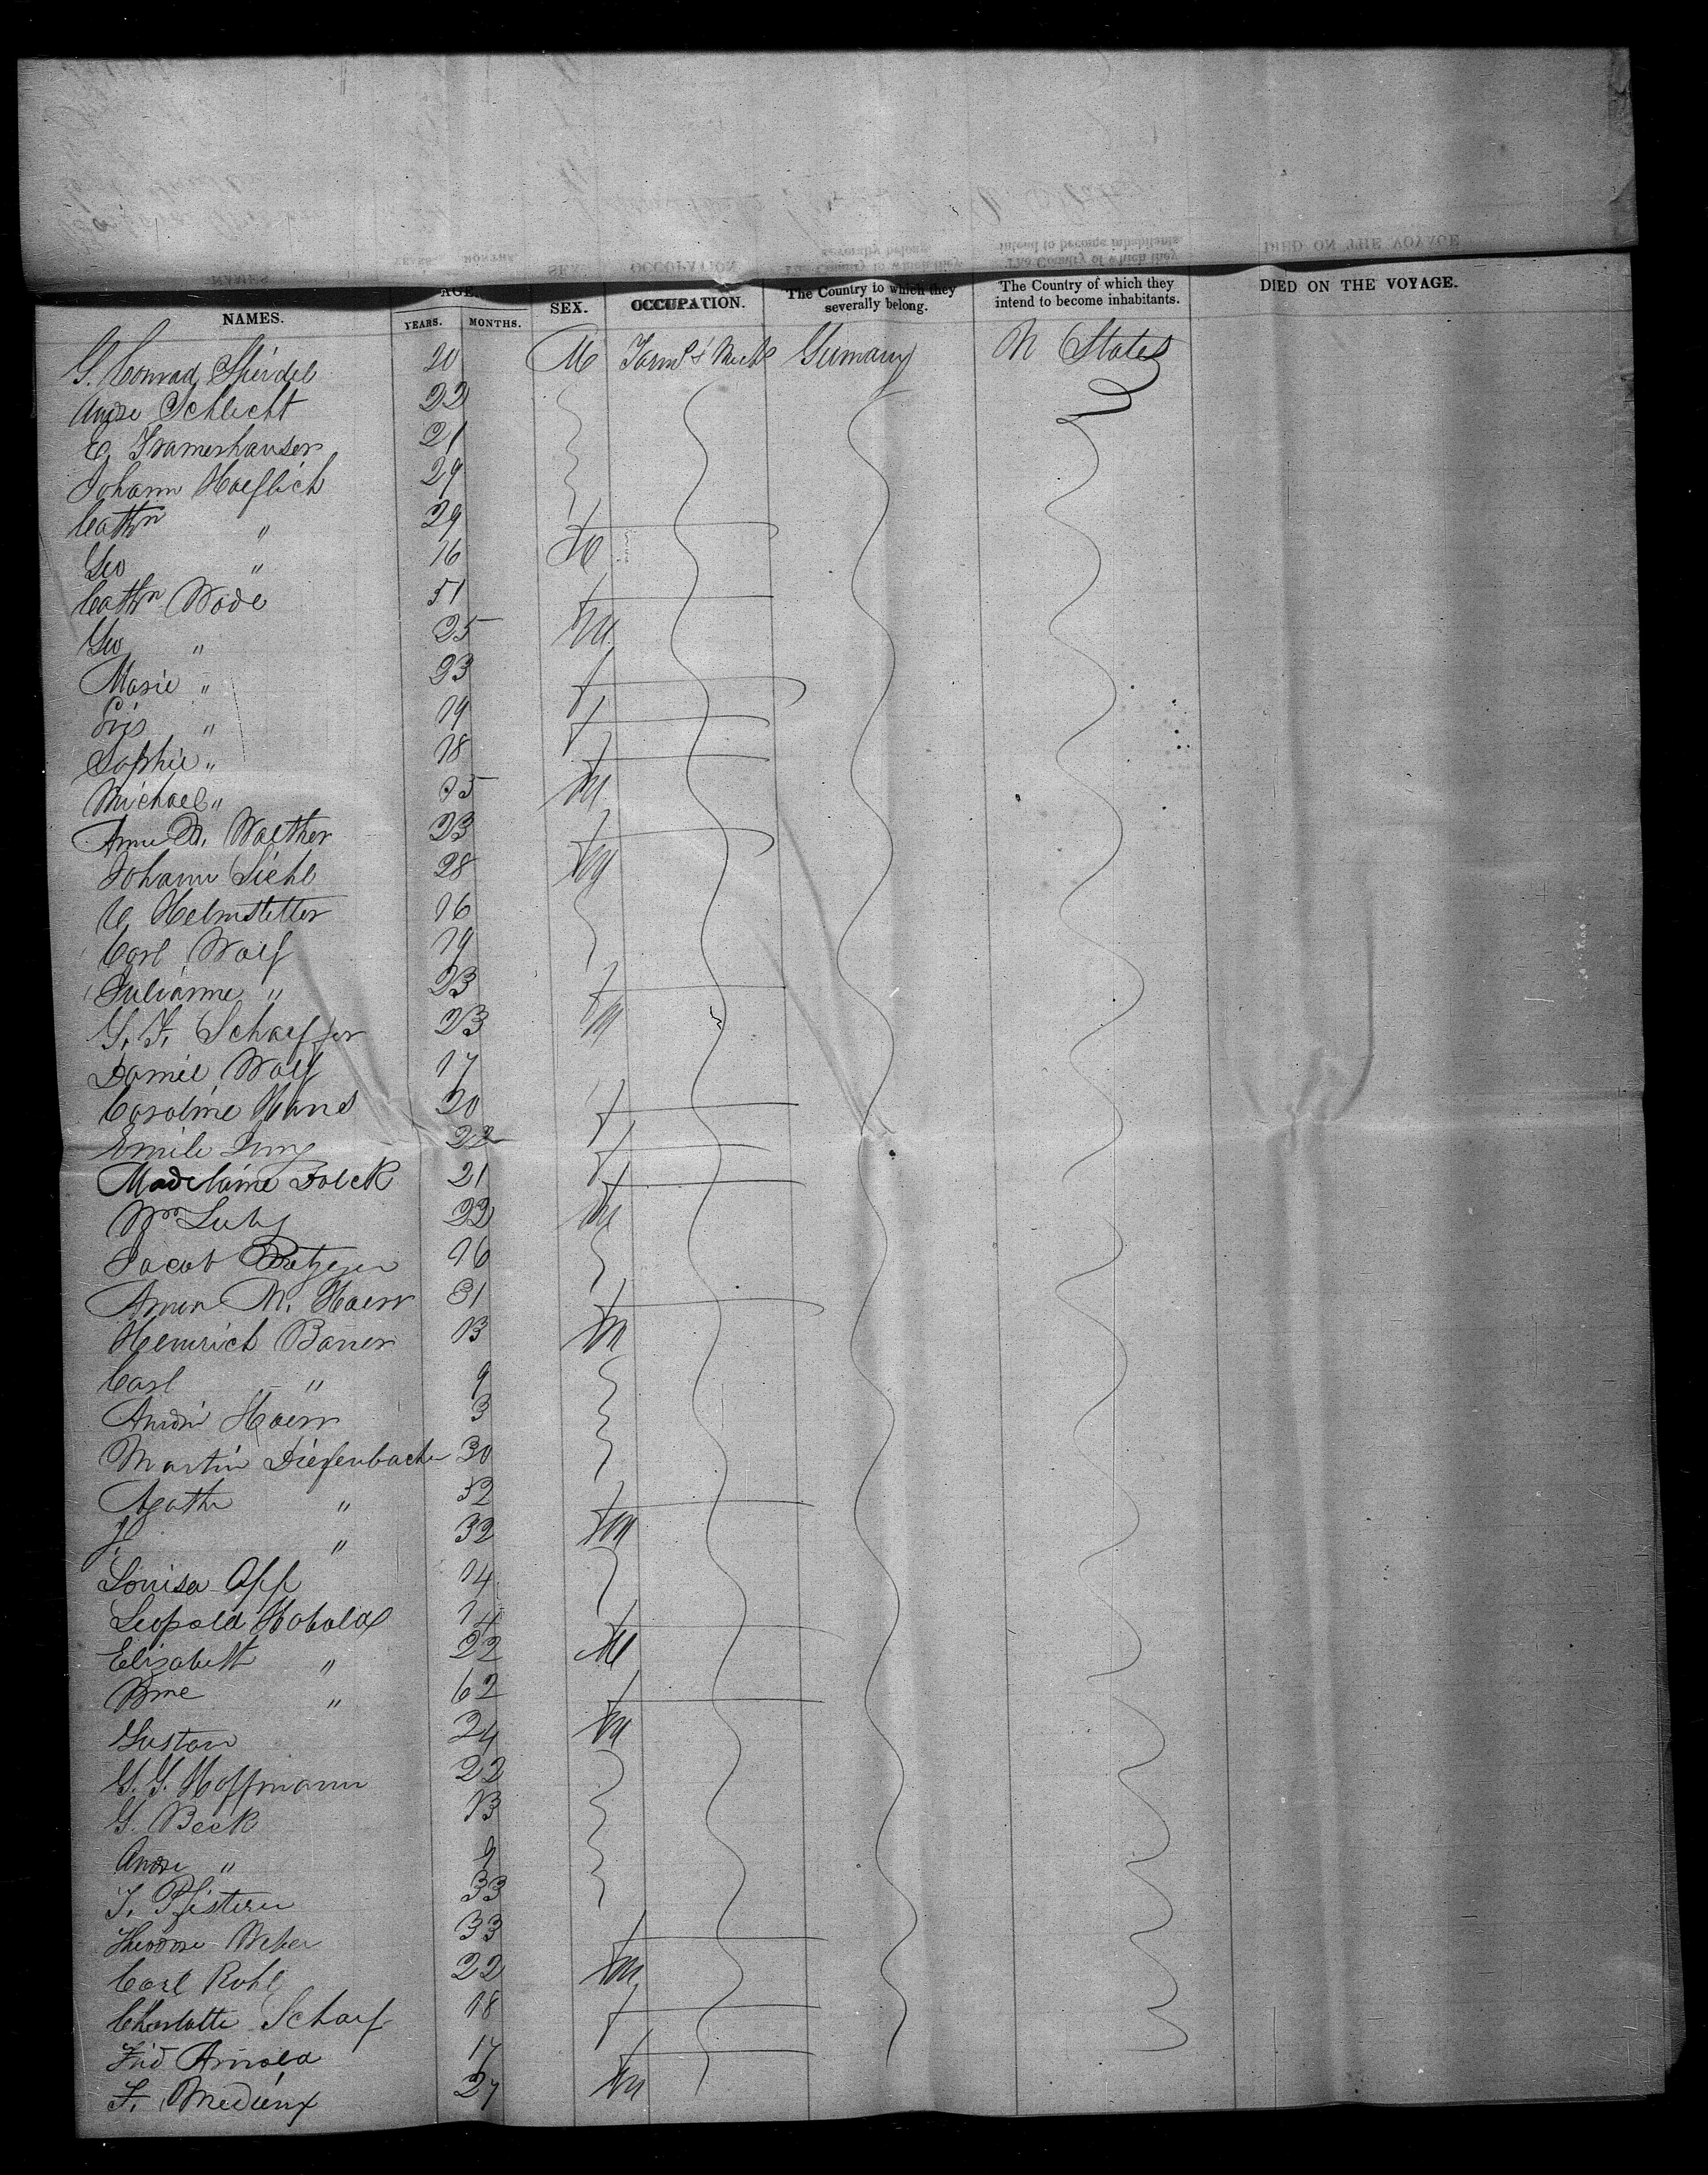 NAMES. AGE. SEX. OCCUPATION. The Country to which they severally belong. The Country of which they intend to become inhabitants. DIED ON THE VOYAGE.
YEARS. MONTHS.
G. Conrad Speidel 20 M Farmrs & Mech Germany U States
Andre Schlicht 22
C. Framershauser 21
Johann Haeflich 29
Cathn " 29 f
Geo " 16 M
Cathn Wode 51 f
Geo " 25 M
Marie " 23 f
" 19 f
Sophie " 18 f
Michael " 25 M
Anne M. Walther 23 f
Johann Siehl 28 M
C. Helmstetter 16
Carl Wolf 19
Julianne " 23 f
G. F. Schaeffer 23 M
Daniel Wolf 17
Caroline Hans 20 f
Emile Jung 22 f
Madelaine Volck 21 f
Wm 22 M
Jacob 16
Anna M. Haerr 31 f
Heinrich Bauer 13 M
Carl " 9
André Haerr 3
Martin Diefenbacher 30
Agathe " 32 f
J. " 32 M
Louisa Opp 14
Leopold Kobold 14
Elisabeth " 22
" 62 f
Gustav 24 M
G. G. Hoffmann 22
G. Beck 13
Andre " 9
J. Pfisterer 33
Theodore Weber 33 f
Carl Ruhl 22 M
Charlotte Scharf 18 f
Frid Arnold 17 f
F. Medieux 27 M